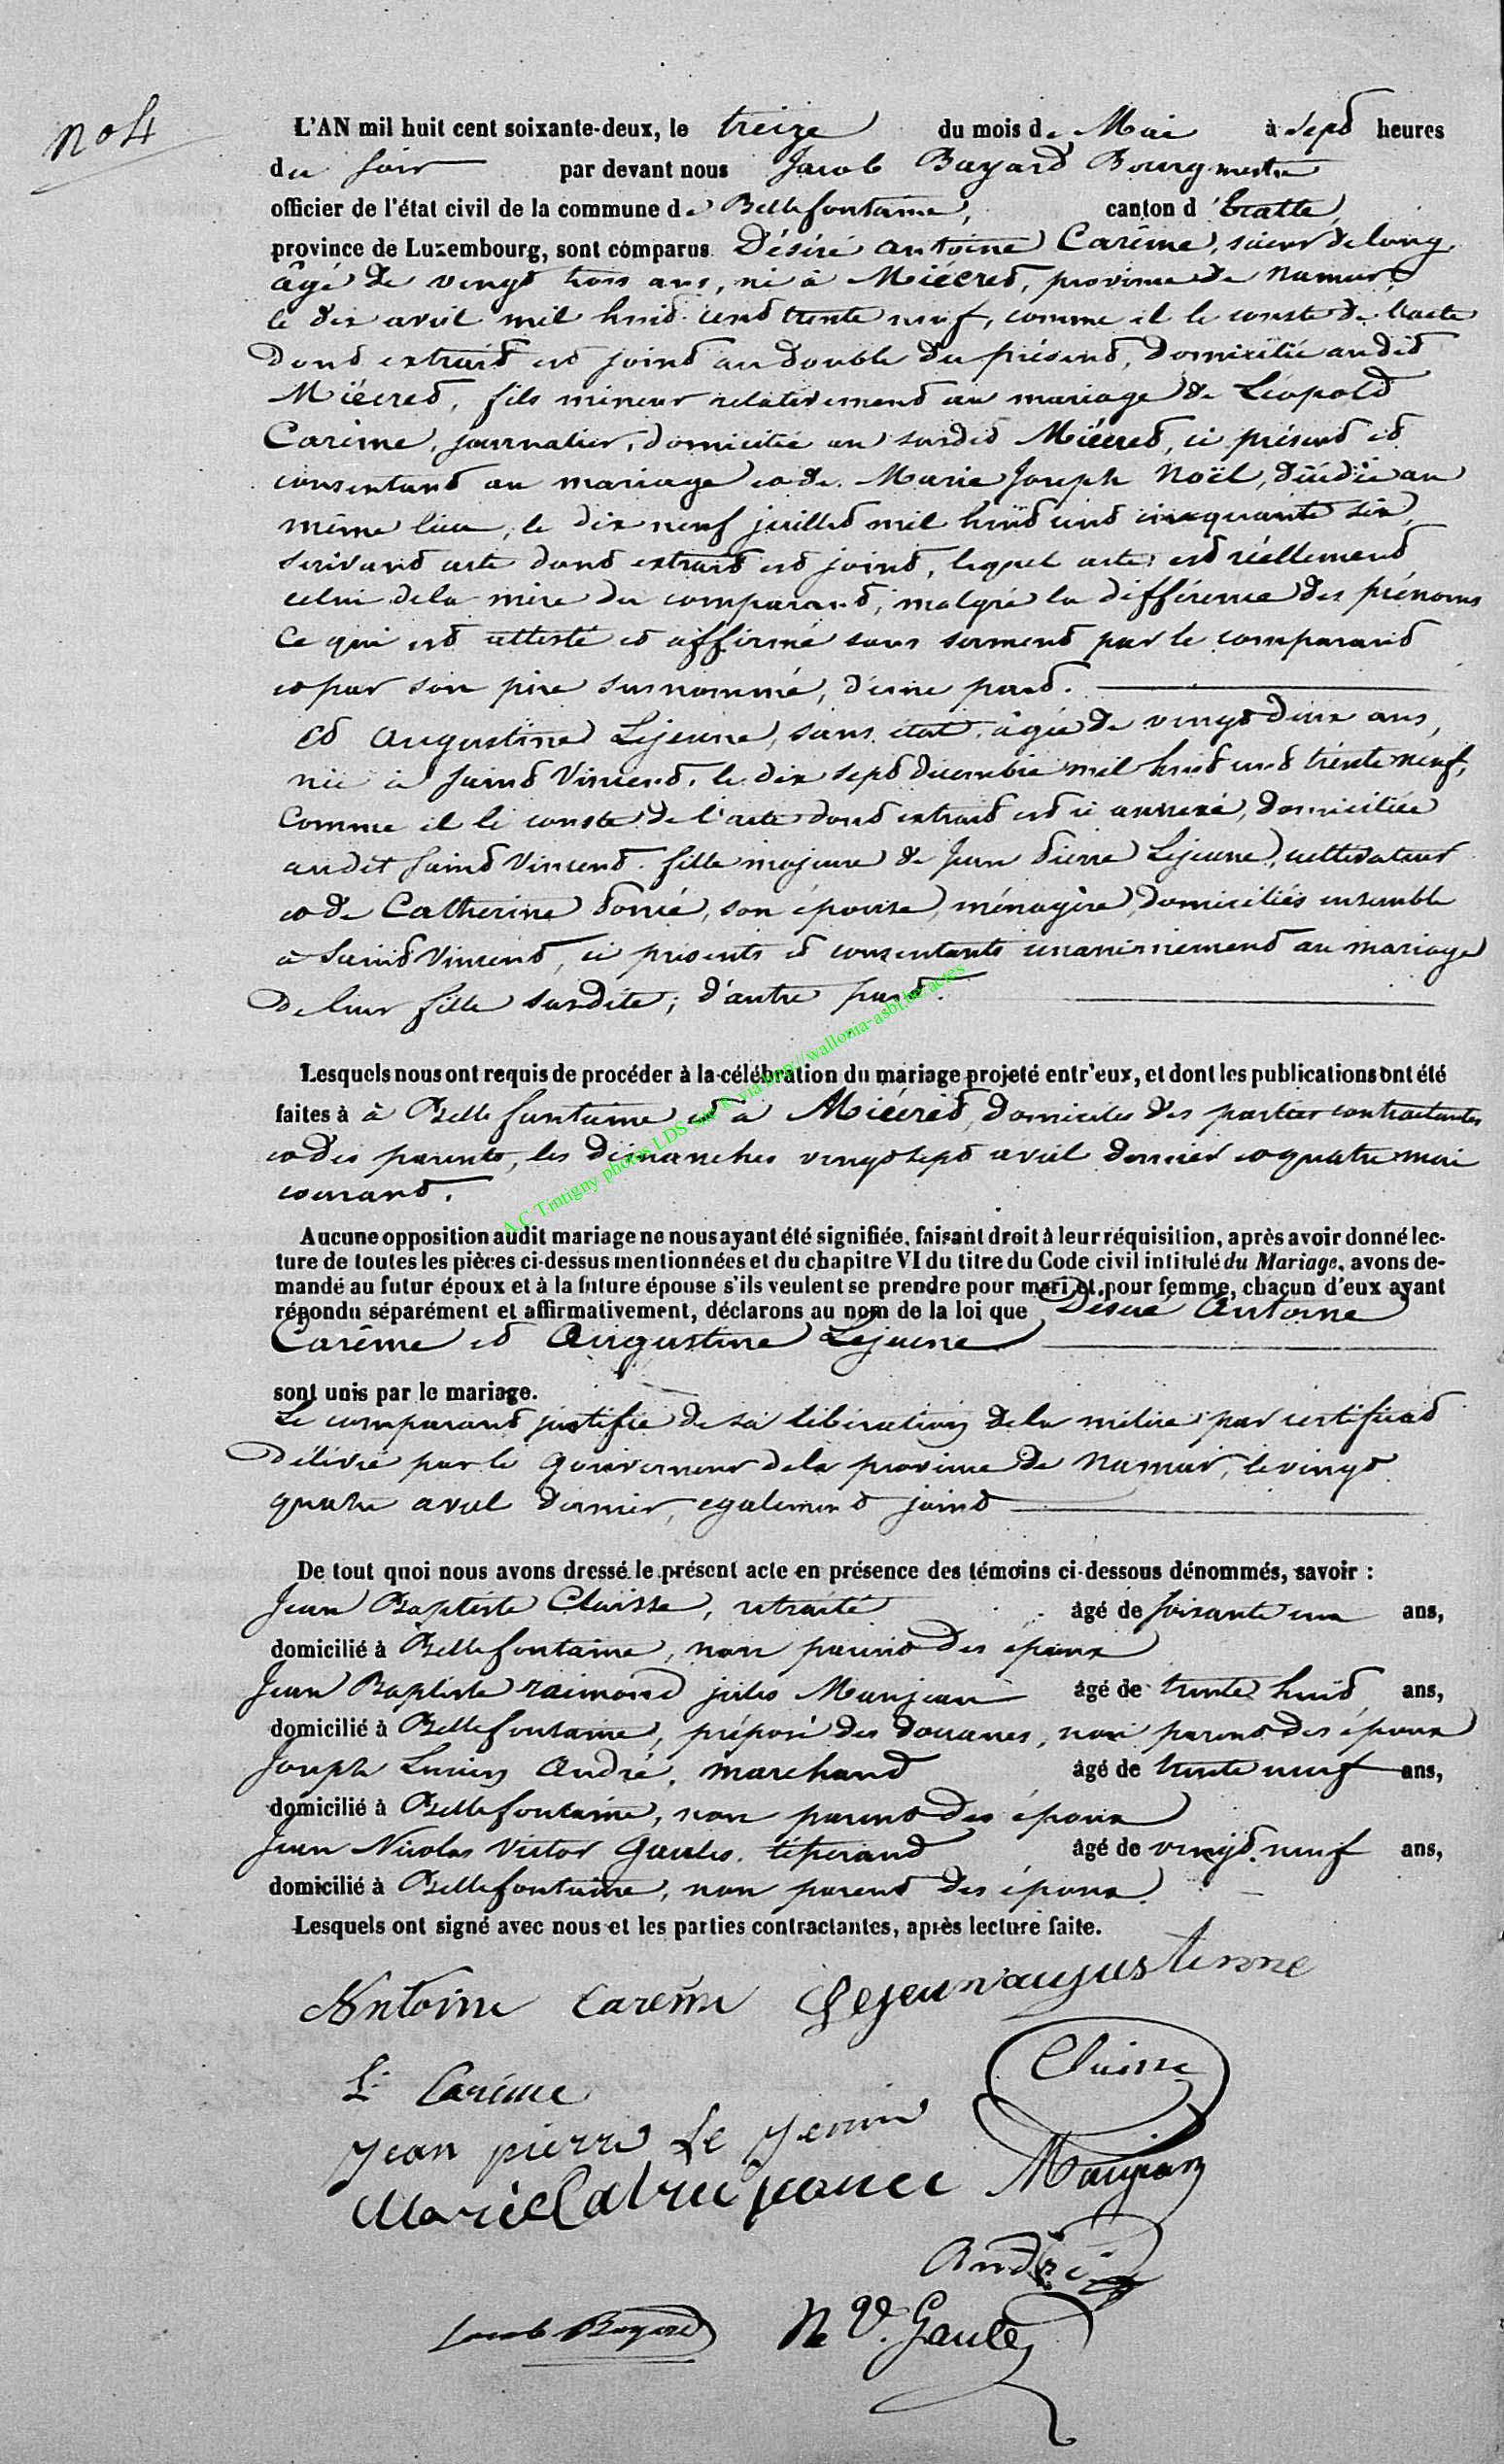 no 4
L'AN mil huit cent soixante-deux, le treize du mois de Mai à sept heures
du soir par devant nous Jacob Bayard Bourgmestre
officier de l'état civil de la commune de Bellefontaine, canton d'Etalle,
province de Luxembourg, sont comparus Désiré antoine Carême, scieur de long,
âgé de vingt trois ans, né à Miécret, province de Namur,
le dix avril mil huit cent trente neuf, comme il le conste de l'acte
dont extrait est joint au double du présent, domicilié audit
Miécret, fils mineur relativement au mariage de Léopold
Carême, journalier, domicilié au susdit Miécret, ci présent et
consentant au mariage et de Marie Joseph Noël, décédée au
même lieu, le dix neuf juillet mil huit cent cinquante six,
suivant acte dont extrait est joint, lequel acte est réellement
celui de la mère du comparant, malgré la différence des prénoms
Ce qui est attesté et affirmé sous serment par le comparant
et par son père surnommé, d'une part.
Et augustine Lejeune, sans état, âgée de vingt deux ans,
née à Saint Vincent, le dix sept décembre mil huit cent trente neuf,
Comme il le conste de l'acte dont extrait est ci annexé, domiciliée
audit Saint Vincent fille majeure de Jean Pierre Lejeune, cultivateur
et de Catherine , son épouse, ménagère, domiciliés ensemble
à Saint Vincent, ci présents et consentants unanimement au mariage
de leur fille susdite; d'autre part.
A.C Tintigny photos LDS via http://wallonia-asbl.be/actes
Lesquels nous ont requis de procéder à la célébration du mariage projeté entr'eux, et dont les publications ont été
faites à à Bellefontaine et à Miécret, domiciles des parties contractantes
et des parents, les dimanches vingt sept avril dernier et quatre mai
courant.
Aucune opposition audit mariage ne nous ayant été signifiée, faisant droit à leur réquisition, après avoir donné lec-
ture de toutes les pièces ci-dessus mentionnées et du chapitre VI du titre du Code civil intitulé du Mariage, avons de-
mandé au futur époux et à la future épouse s'ils veulent se prendre pour mari et pour femme, chacun d'eux ayant
répondu séparément et affirmativement, déclarons au nom de la loi que Désiré Antoine
Carême et Augustine Lejeune
sont unis par le mariage.
Le comparant justifie de sa libération de la milice par certificat
délivré par le Gouverneur de la province de Namur, le vingt
quatre avril dernier, egalement joint
De tout quoi nous avons dressé le présent acte en présence des témoins ci-dessous dénommés, savoir :
Jean Baptiste Claisse, retraité âgé de soixante un ans,
domicilié à Bellefontaine, non parent des époux
Jean Baptiste raimond jules Manjean âgé de trente huit ans,
domicilié à Bellefontaine, préposé des douanes, non parent des époux
Joseph Lucien André, marchand âgé de trente neuf ans,
domicilié à Bellefontaine, non parent des époux
Jean Nicolas Victor Gaules, âgé de vingt neuf ans,
domicilié à Bellefontaine, non parent des époux.
Lesquels ont signé avec nous et les parties contractantes, après lecture faite.
Antoine Carême Lejeun augustinne
Claisse
L. Carême
Jean pierre Le Jeune
Manjean
André
Jacob Bayard N V. Gaules